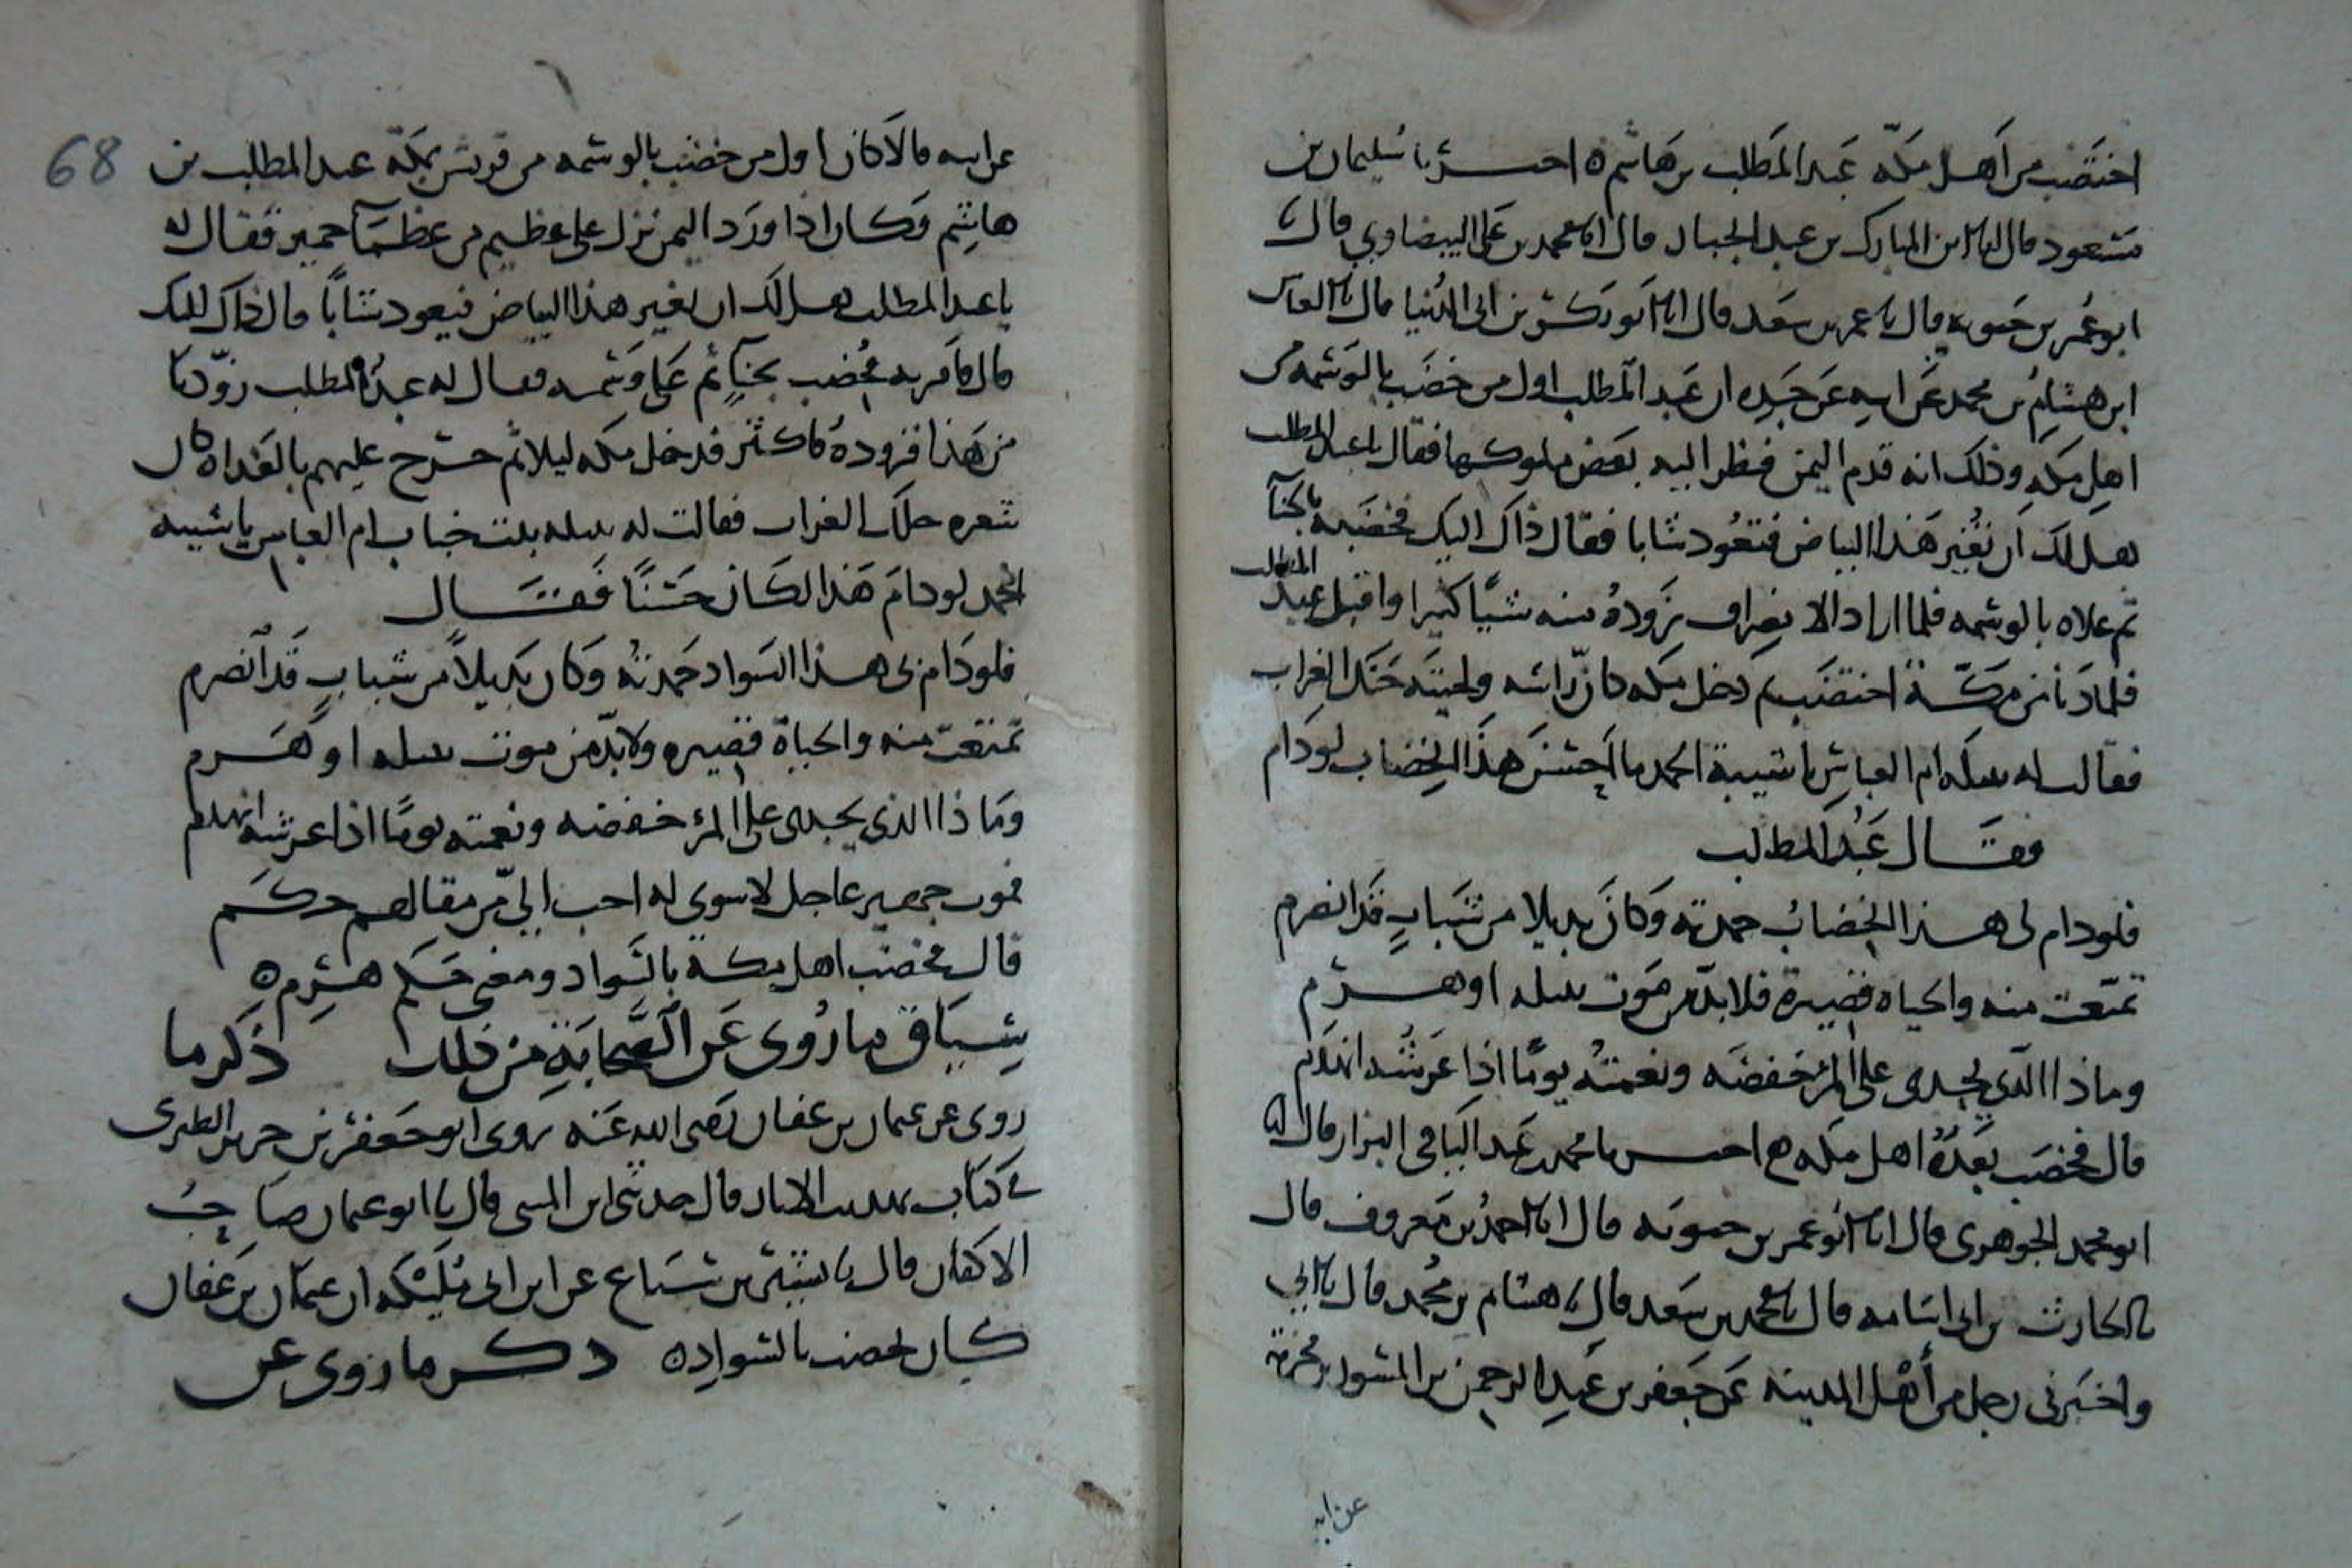 اختضب من أهل مكة عبد المطلب بن هاشم ه اخبرنا سليمان بن
مسعود قال انا ابن المبارك بن عبد الجبار قال انا محمد بن علي البيضاوي قال نا
ابو عمر بن حيويه قال نا عمر بن سعد قال انا ابو بكر بن ابي الدنيا قال نا العباس
ابن هشام بن محمد عن ابيه عن جده ان عبد المطلب اول من خضب بالوسمه من
اهل مكه وذلك انه قدم اليمن فنظر اليه بعض ملوكها فقال يا عبد المطلب
هل لك ان تغير هذا البياض فتعود شابا فقال ذاك اليك فخضبه بالحنا
ثم علاه بالوسمه فلما اراد الانصراف زوده منه شيًا كثيرا واقبل عبد المطلب
فلما دنا من مكة اختضب ثم دخل مكه كان رأسه ولحيته حنك الغراب
فقالت له نتيله ام العباس يا شيبة الحمد ما احسن هذا الخضاب لو دام
فقال عبد المطلب
فلو دام لي هذا الخضاب حمدته وكان بديلا من شباب قد انصرم
تمتعت منه والحياه قصيرة فلا بد من موت نتيله او هرم
وماذا الذي يجدى على المرء خفضه ونعمته يومًا اذا عرشه انهدم
قال فخضب بعده اهل مكه اخبرنا محمد بن عبد الباقي البزار قال انا
ابو محمد الجوهري قال انا ابو عمر بن حيويه قال انا احمد بن معروف قال
نا الحارث بن ابي اسامه قال نا محمد بن سعد قال نا هشام بن محمد قال نا ابي
واخبرني رجل من أهل المدينه عن جعفر بن عبد الرحمن بن المسور بن مخرمة
عن ابيه
68
عن ابيه قالا كان اول من خضب بالوسمه من قريش بمكة عبد المطلب بن
هاشم فكان اذا ورد اليمن نزل على عظيم من عظمآ حمير فقال له
يا عبد المطلب هل لك ان تغير هذا البياض فيعود شابًا قال ذاك اليك
قال فامر به فخضب بحنآٍ ثم على وسمه فقال له عبد المطلب زودنا
من هذا فزوده فاكثر فدخل مكه ليلا ثم خرج عليهم بالغداه كان
شعره حلك الغراب فقالت له نتيله بنت خباب ام العباس يا شيبه
الحمد لو دام هذا لكان حسنًا فقال
فلو دام لي هذا السواد حمدته وكان بديلاً من شباب قد انصرم
تمتعت منه والحياة قصيره ولا بد من موت نتيله او هرم
وماذا الذي يجدى على المرء خفضه ونعمته يومًا اذا عرشه انهدم
فموت جهير عاجل لا سوى له احب الي من مقالهم حكم
قال فخضب اهل مكة بالسواد ومعنى حكم هرم ه
سياق ما روى عن الصحابة من ذلك ذكر ما
روى عن عثمان بن عفان رضى الله عنه روى ابو جعفر بن جرير الطبرى
في كتاب تهذيب الاثار قال حدثنى ابن المثنى قال نا ابو عثمان صاحب
الاكفان قال نا بشر بن شباع عن ابن ابي مليكه ان عثمان بن عفان
كان يخضب بالسواد ه ذكر ما روى عن